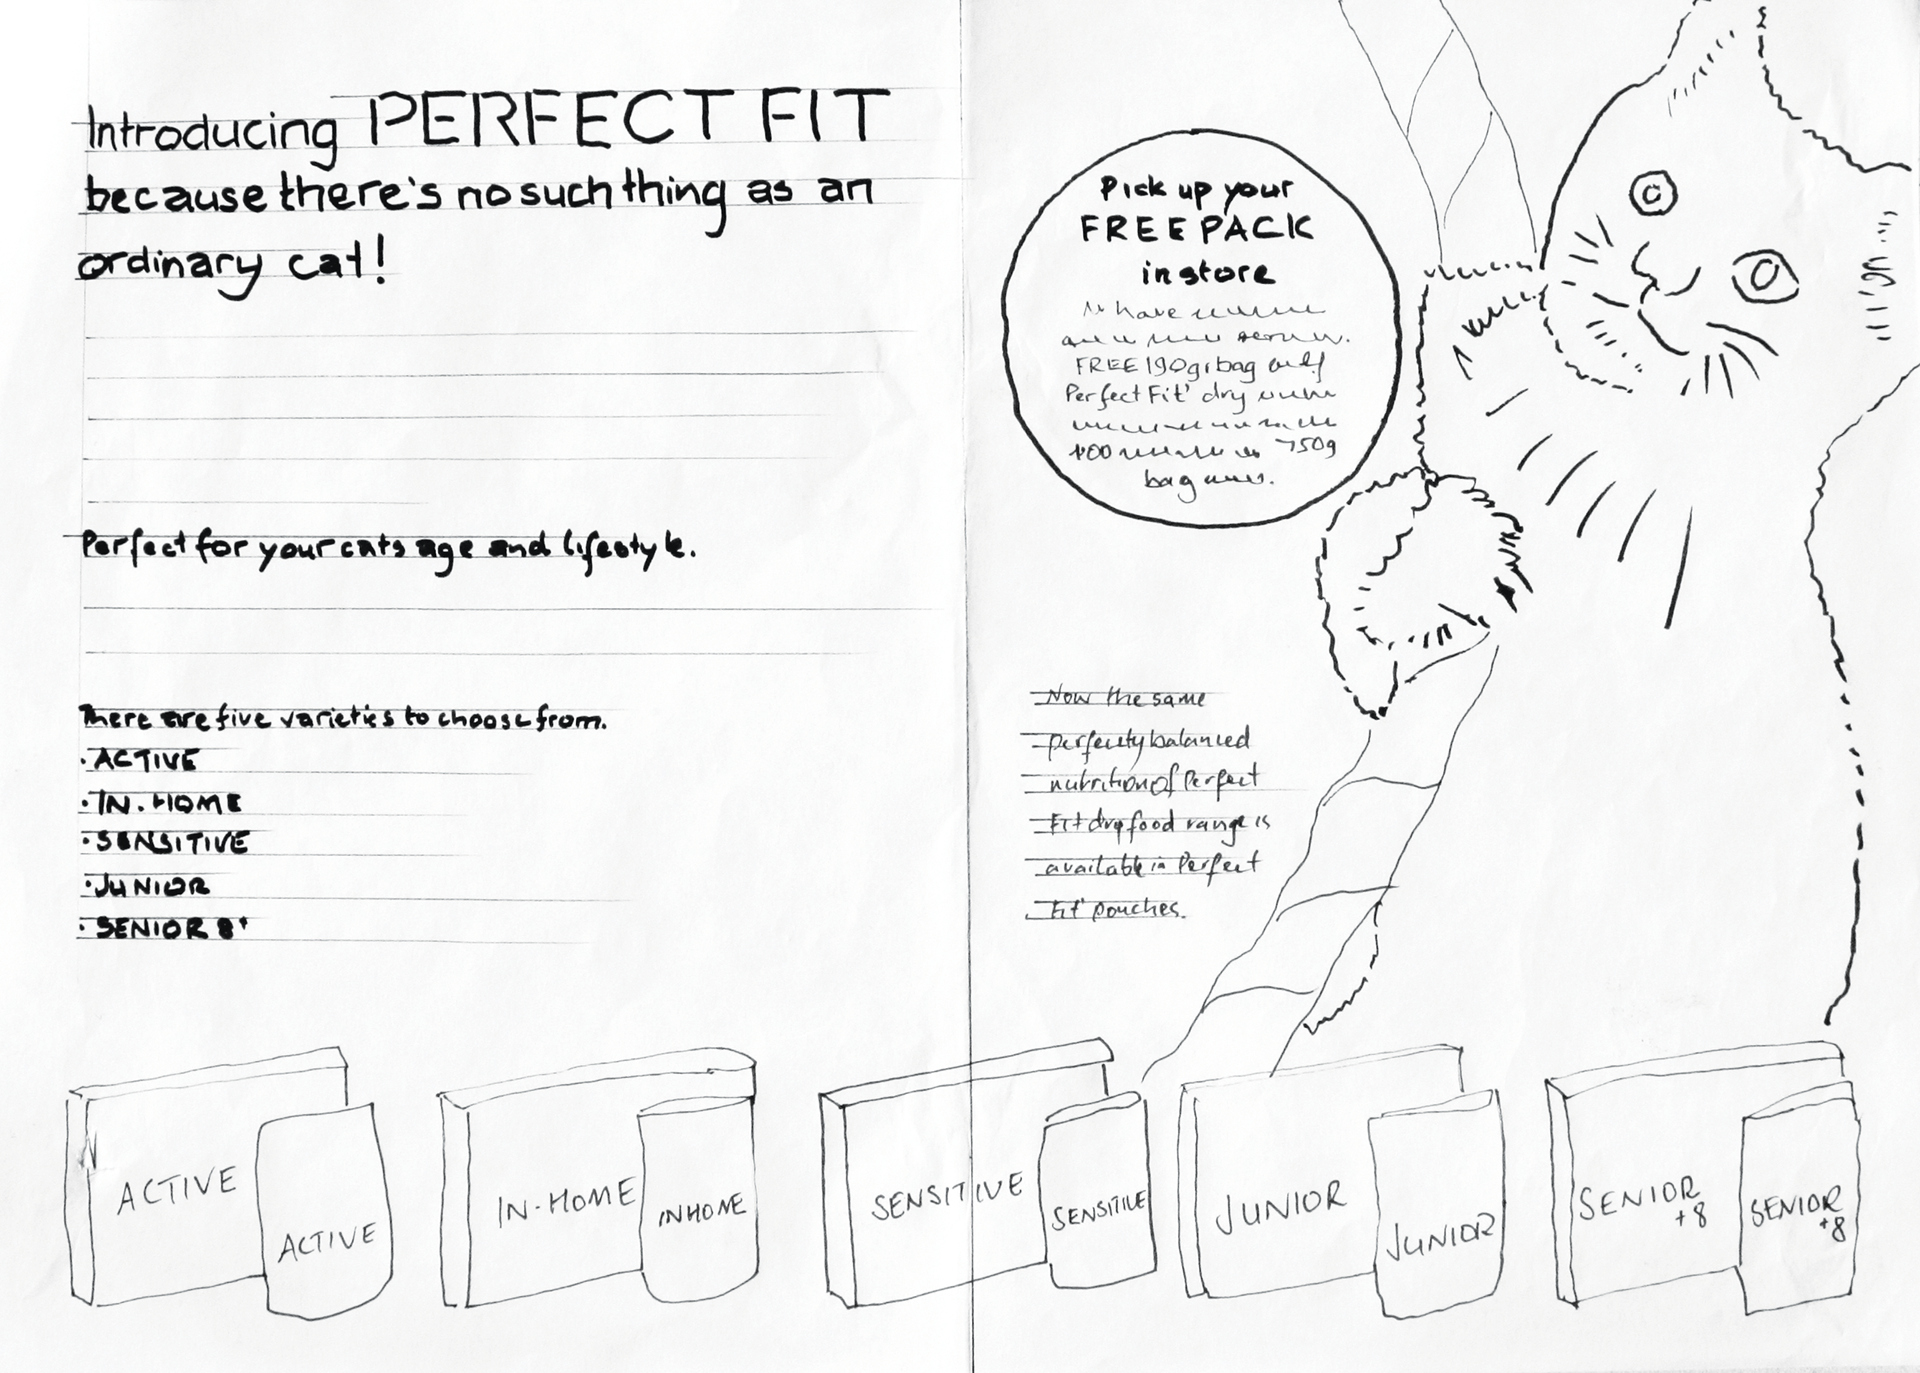 Introducing PERFECT FIT
because there's no such thing as an
ordinary cat!
Perfect for your cats age and lifestyle.
There are five varieties to choose from.
·ACTIVE
·IN-HOME
·SENSITIVE
·JUNIOR
·SENIOR 8+
Pick up your
FREE PACK
in store
have
FREE 190gr bag
Perfect Fit' dry
750g
bag
Now the same
perfectly balanced
nutrition of Perfect
Fit dry food range is
available in Perfect
Fit' pouches.
ACTIVE
ACTIVE
IN-HOME
INHOME
SENSITIVE
SENSITIVE
JUNIOR
JUNIOR
SENIOR
+8
SENIOR
+8